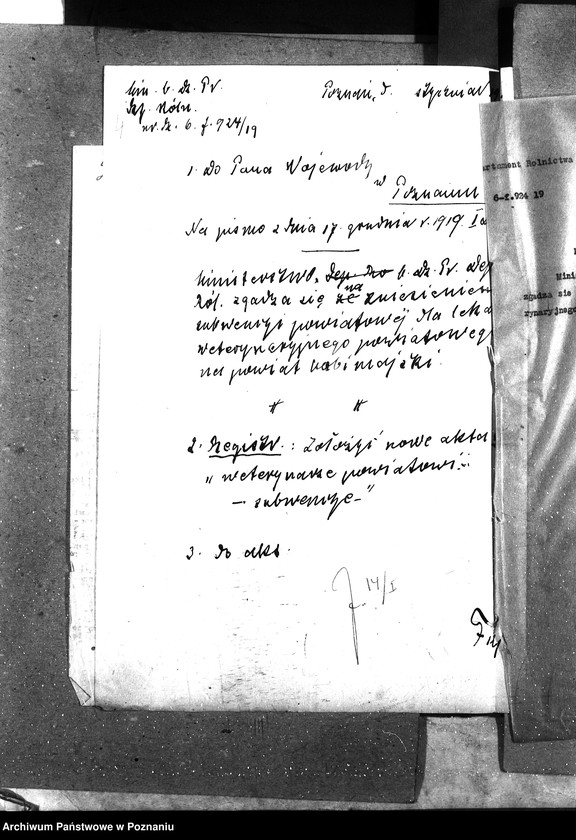 Min. b. dz. Pr.
Dep. Roln.
nr. dz. 6. f. 924/19
Poznań, d. stycznia
1. Do Pana Wojewody
w Poznaniu
Na pismo z dnia 17. grudnia r. 1919. Ia
Ministerstwo b. dz. Pr. Dep
Rol. zgadza się na zniesieniem
subwencji powiatowej dla leka
weterynaryjnego powiatowego
na powiat babimojski.
2. Registr.: Założyć nowe akta
„weterynarze powiatowi
– subwencje –"
3. Do akt.
14/I
artament Rolnictwa
6-f.924 19
Mini
zgadza się
zynaryjnego
Archiwum Państwowe w Poznaniu